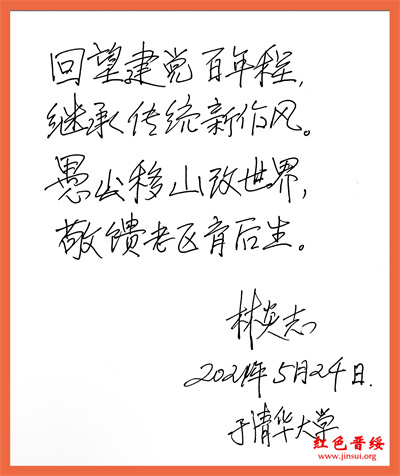 回望建党百年程，
继承传统新作风。
愚公移山改世界，
敬馈老区育后生。
林炎志
2021年5月24日.
于清华大学
红色晋绥
www.jinsui.org